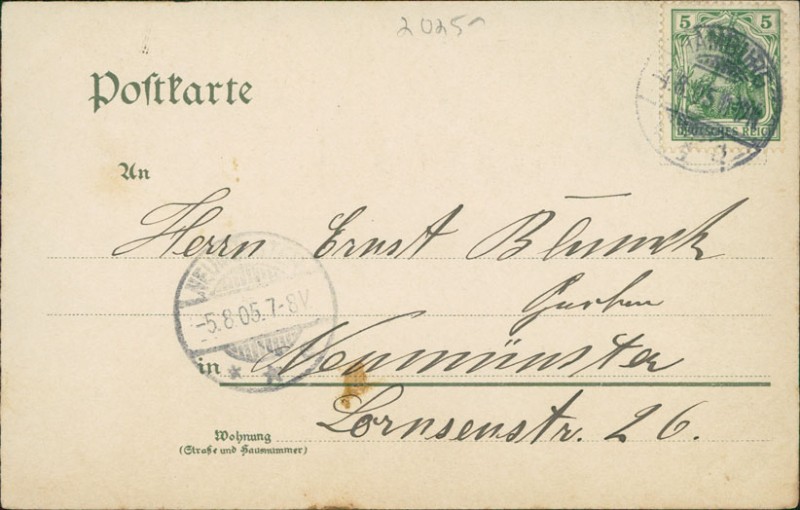 2025
5 5
HAMBURG
DEUTSCHES REICH
Postkarte
An
Herrn Ernst Blunck
-5.8.05.7-8V.
in Neumünster
Lornsenstr. 26.
Wohnung
(Straße und Hausnummer)